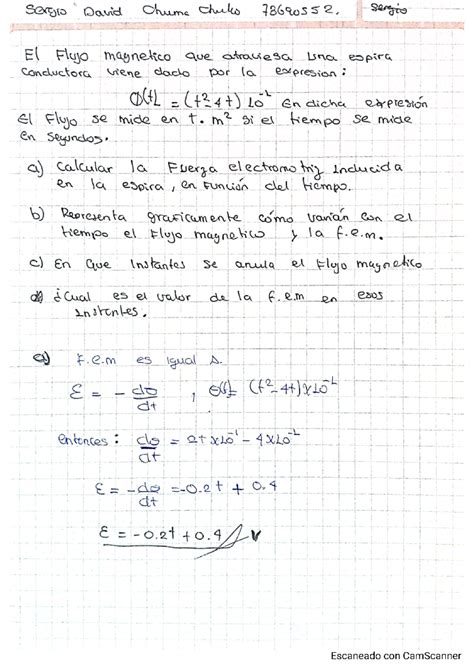 Sergio David Chume Chuko 78690552. Sergio
El Flujo magnetico que atraviesa una espira
conductora viene dado por la expresion:
Φ(t) = (t²-4t) 10⁻¹ En dicha expresión
El Flujo se mide en T.m² si el tiempo se mide
en segundos.
a) Calcular la Fuerza electromotriz inducida
en la espira, en función del tiempo.
b) Representa graficamente cómo varían con el
tiempo el Flujo magnetico y la f.e.m.
c) En que instantes se anula el Flujo magnetico
d) ¿Cual es el valor de la f.e.m en esos
instantes.
a) F.e.m es igual a.
ε = - dø/dt , Ø(t)= (t²-4t)x10⁻¹
entonces: dø/dt = 2t x10⁻¹ - 4x10⁻¹
ε = -dø/dt = -0.2t + 0.4
ε = -0.2t + 0.4 // V
Escaneado con CamScanner